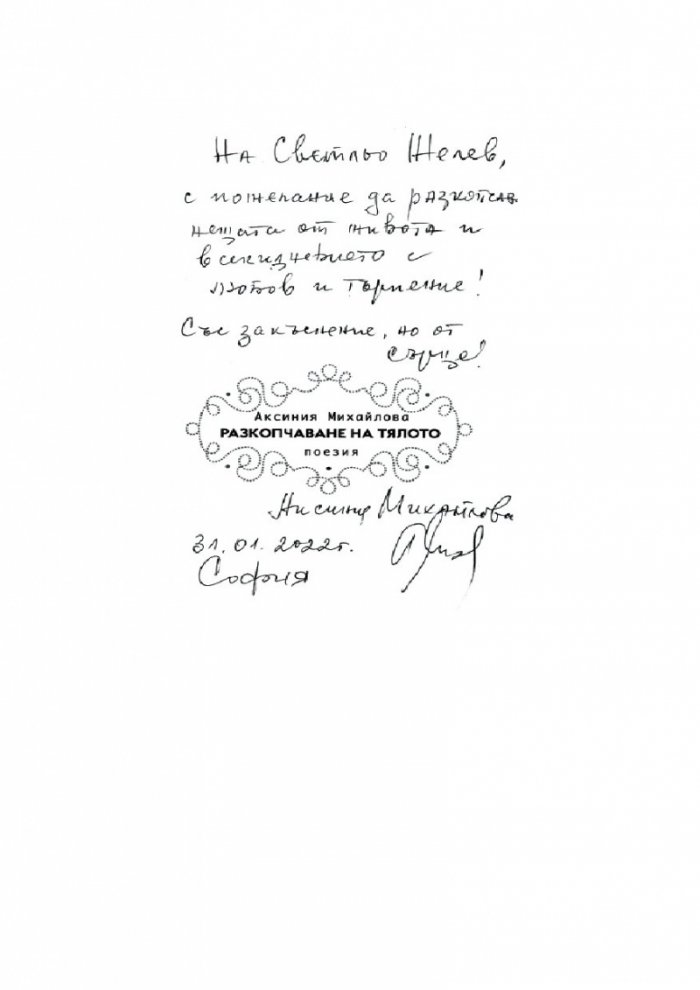 На Светльо Желев,
с пожелание да разкопчав
нещата от живота и
всекидневието с
любов и търпение!
Със закъснение, но от
сърце!
Аксиния Михайлова
РАЗКОПЧАВАНЕ НА ТЯЛОТО
поезия
Аксиния Михайлова
31.01.2022г.
София